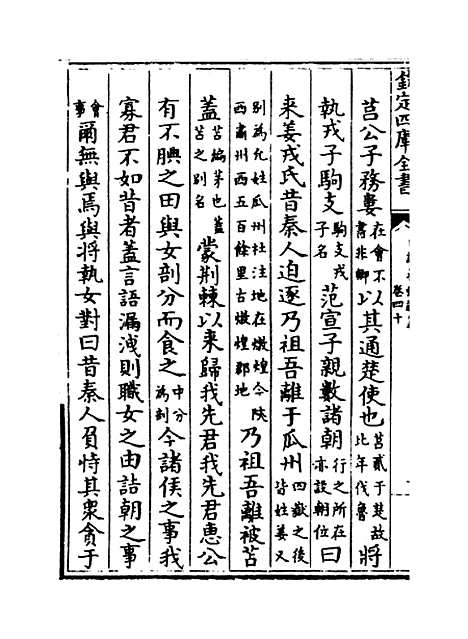 欽定四庫全書
卷四十
莒公子務婁在會不書非卿以其通楚使也莒貳于楚故比年伐魯將
執戎子駒支駒支戎子名范宣子親數諸朝行之所在亦設朝位曰
来姜戎氏昔秦人迫逐乃祖吾離于瓜州四嶽之後皆姓姜又
别為允姓瓜州杜注地在燉煌今陜西肅州西五百餘里古燉煌郡地乃祖吾離被苫
蓋苫編茅也蓋苫之别名蒙荆棘以来歸我先君我先君惠公
有不腆之田與女剖分而食之中分為剖今諸侯之事我
寡君不如昔者蓋言語漏洩則職女之由詰朝之事
會事爾無與焉與將執女對曰昔秦人負恃其衆貪于